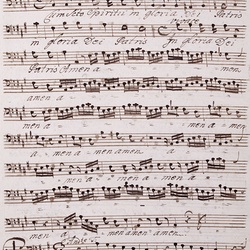 Cum Sto Spiritu in gloria Dei Patris
in gloria Dei Patris In gloria Dei
Patris Amen a men
amen a
men a men a
a men amen a
men a
a men amen amen